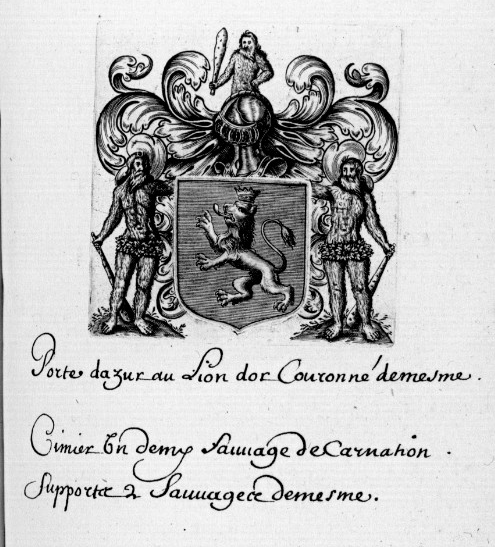 Porte dazur au Lion dor Couronné demesme.
Cimier Vn demy Sauuage de Carnation.
Supportz 2 Sauuages demesme.